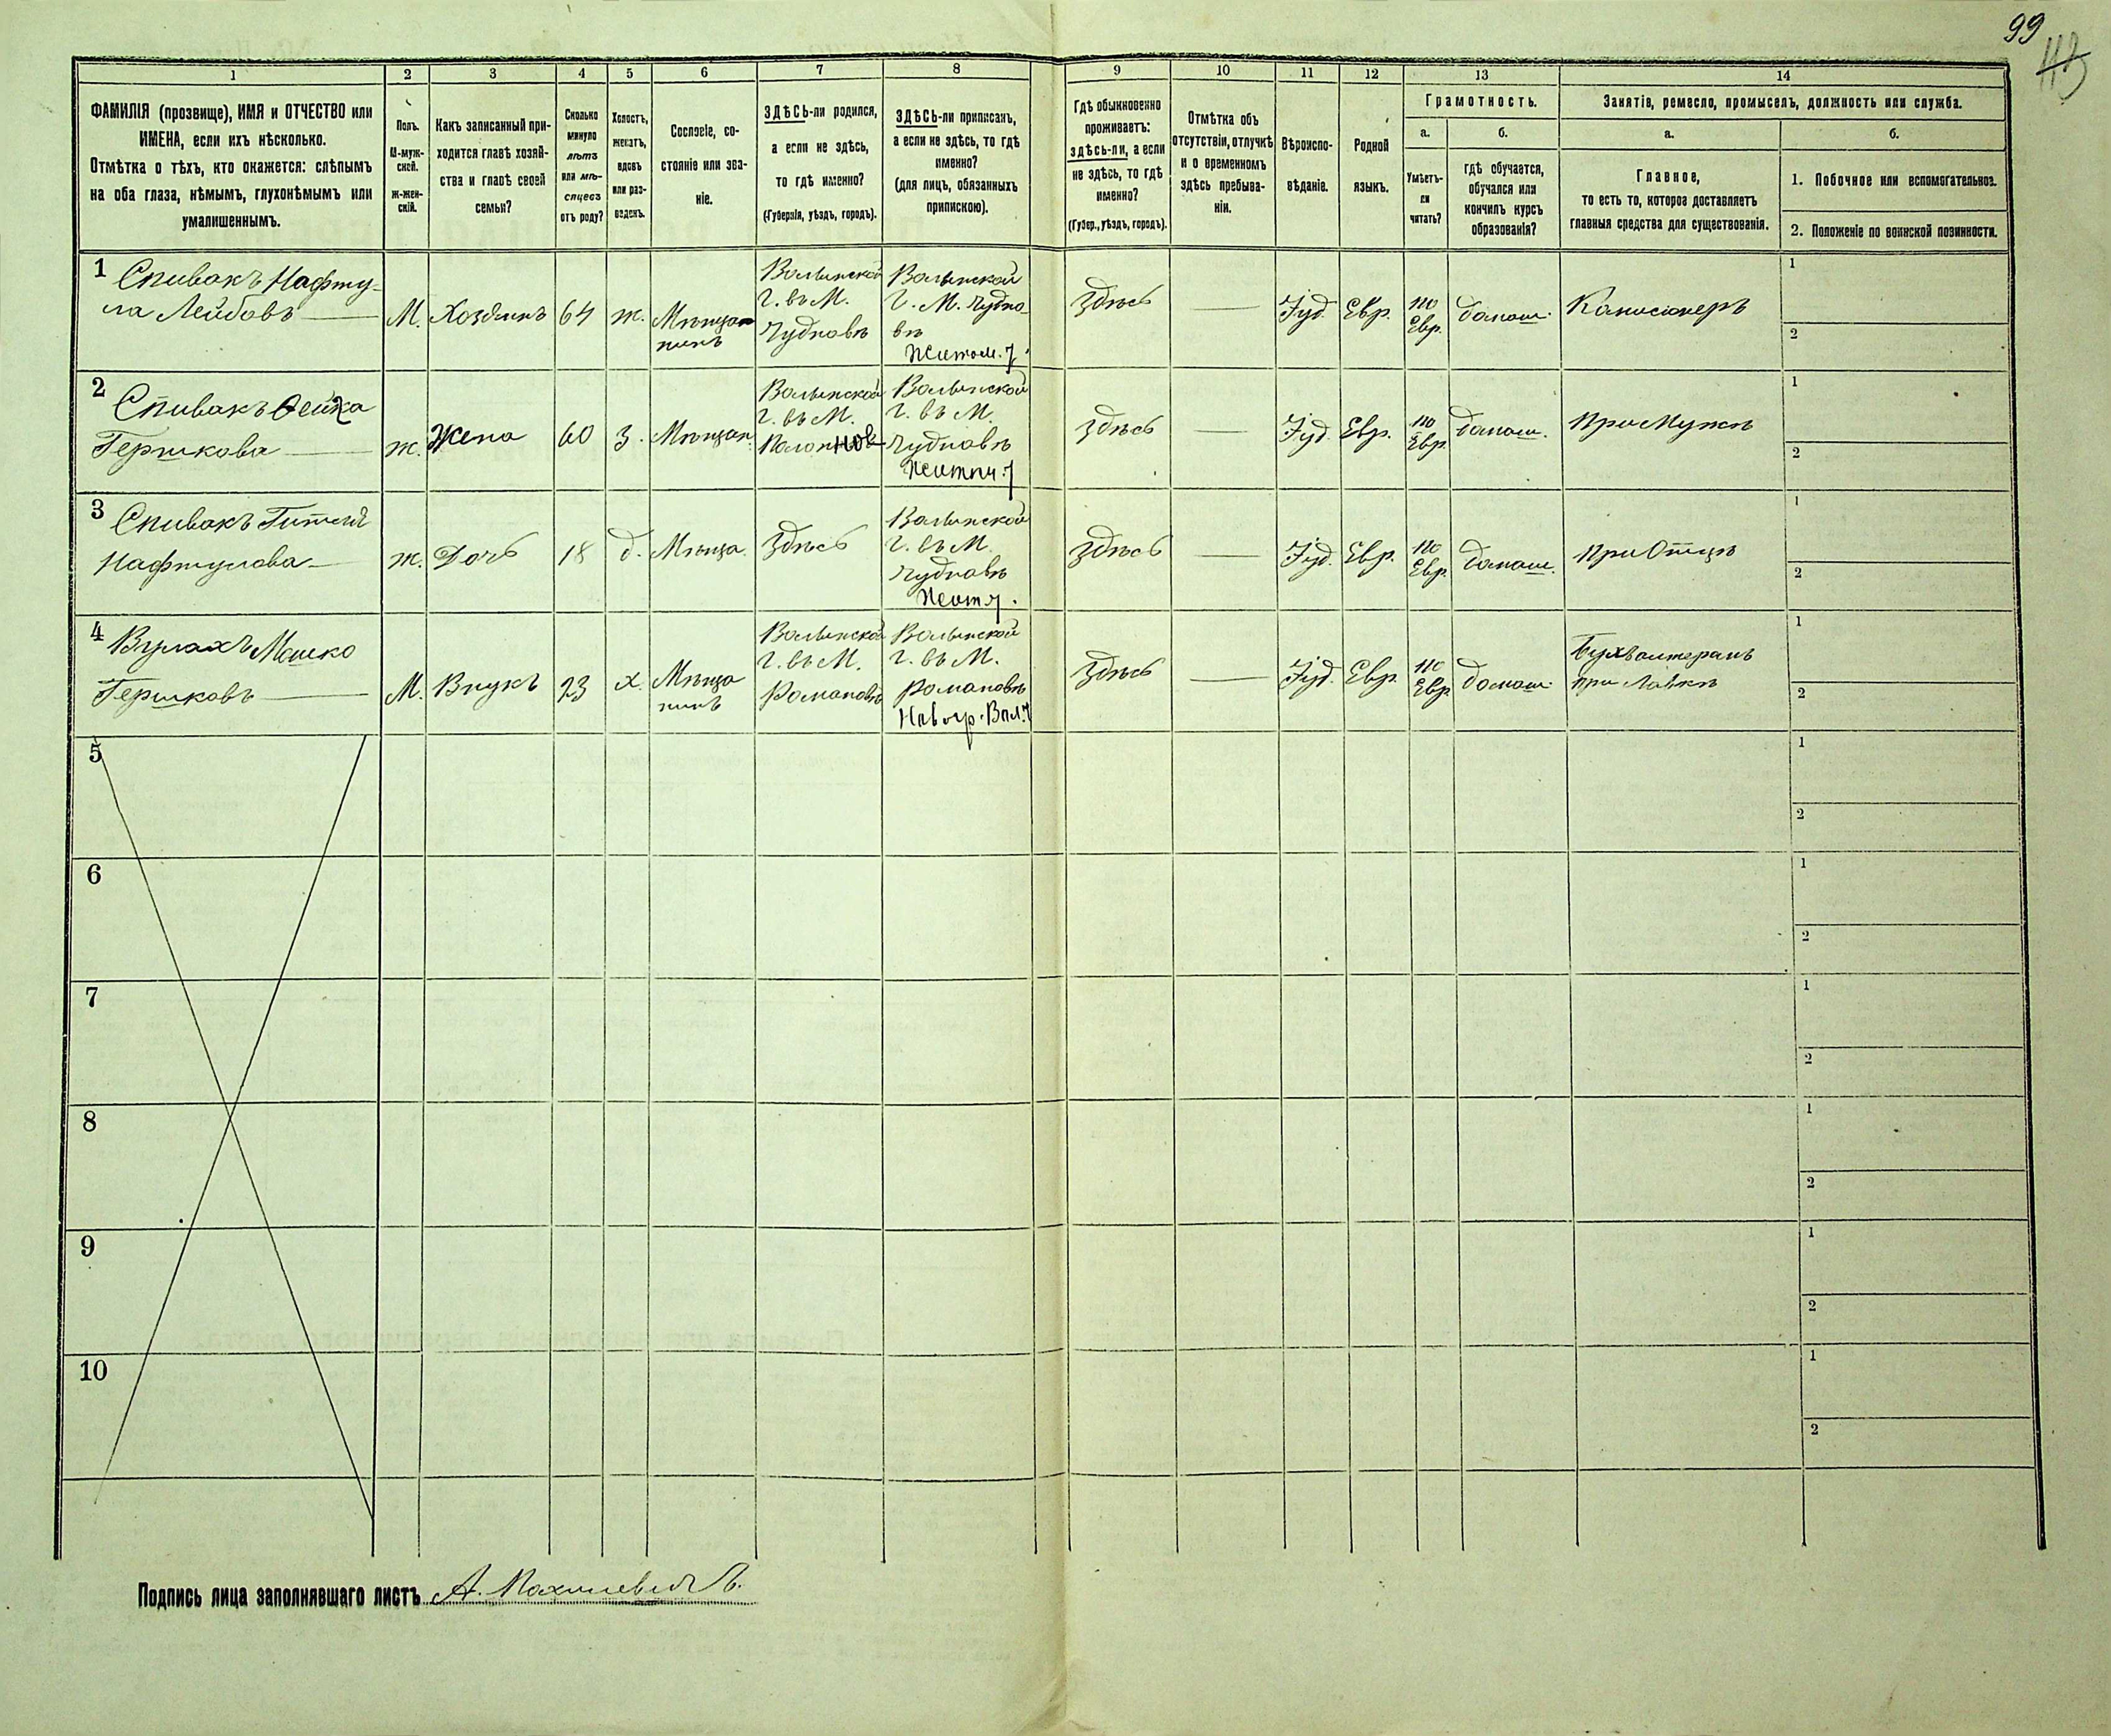 99
113
1
2
3
4
5
6
7
8
9
10
11
12
13
14
ФАМИЛІЯ (прозвище), ИМЯ и ОТЧЕСТВО или
ИМЕНА, если ихъ нѣсколько.
Отмѣтка о тѣхъ, кто окажется: слѣпымъ
на оба глаза, нѣмымъ, глухонѣмымъ или
умалишеннымъ.
Полъ.
М-муж-
ской.
ж-жен-
скій.
Какъ записанный при-
ходится главѣ хозяй-
ства и главѣ своей
семьи?
Сколько
минуло
лѣтъ
или мѣ-
сяцевъ
отъ роду?
Холостъ,
женатъ,
вдовъ
или раз-
веденъ.
Сословіе, со-
стояніе или зва-
ніе.
ЗДѢСЬ-ли родился,
а если не здѣсь,
то гдѣ именно?
(Губернія, уѣздъ, городъ).
ЗДѢСЬ-ли приписанъ,
а если не здѣсь, то гдѣ
именно?
(для лицъ, обязанныхъ
припискою).
Гдѣ обыкновенно
проживаетъ:
здѣсь-ли, а если
не здѣсь, то гдѣ
именно?
(Губер., уѣздъ, городъ).
Отмѣтка объ
отсутствіи, отлучкѣ
и о временномъ
здѣсь пребыва-
ніи.
Вѣроиспо-
вѣданіе.
Родной
языкъ.
Грамотность.
а.
б.
Умѣетъ-
ли
читать?
гдѣ обучается,
обучался или
кончилъ курсъ
образованія?
Занятіе, ремесло, промыселъ, должность или служба.
а.
б.
Главное,
то есть то, которое доставляетъ
главныя средства для существованія.
1. Побочное или вспомогательное.
2. Положеніе по воинской повинности.
1
Спивакъ Нафту-
ла Лейбовъ
М.
Хозяинъ
64
ж.
Мѣщан
нинъ
Волынской
г. въ М.
Чудновѣ
Волынской
Г. М. Чудно-
вѣ
Житом. у.
Здѣсь
Іуд.
Евр.
по
Евр.
домаш.
Комисіонеръ
1
2
2
Спивакъ Фейга
Гершкова
ж.
Жена
60
З.
Мѣщан.
Волынской
г. въ М.
Полонное
Волынской
г. въ М.
Чудновѣ
Житом. у
Здѣсь
Іуд.
Евр.
по
Евр.
домаш.
При Мужѣ
1
2
3
Спивакъ
Нафтулова
ж.
Дочь
18
д.
Мѣща.
Здѣсь
Волынской
г. въ М.
Чудновѣ
Жит у.
Здѣсь
Іуд.
Евр.
по
Евр.
домаш.
При Отцѣ
1
2
4
Мошко
Гершковъ
М.
Внукъ
23
х.
Мѣща
нинъ
Волынской
г. въ М.
Романовѣ
Волынской
г. въ М.
Романовѣ
Новогр. Вол. у
Здѣсь
Іуд.
Евр.
по
Евр.
домаш.
Бухгалтеромъ
при Лавкѣ
1
2
5
1
2
6
1
2
7
1
2
8
1
2
9
1
2
10
1
2
Подпись лица заполнявшаго листъ А.